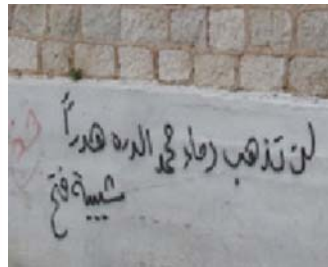 لن تذهب دماء محمد الدره هدراً
شبيبة فتح